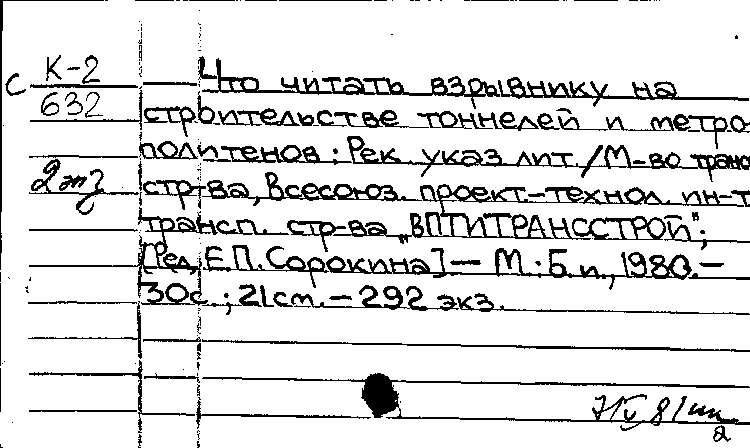 С К-2
632
2 экз
Что читать взрывнику на
строительстве тоннелей и метро-
политенов: Рек. указ. лит. / М-во трансп.
стр-ва, Всесоюз. проект.-технол. ин-т
трансп. стр-ва „ВПТИТРАНССТРОЙ";
[Ред. Е.П. Сорокина] — М.: Б.и., 1980. –
30с.; 21см. – 292 экз.
2